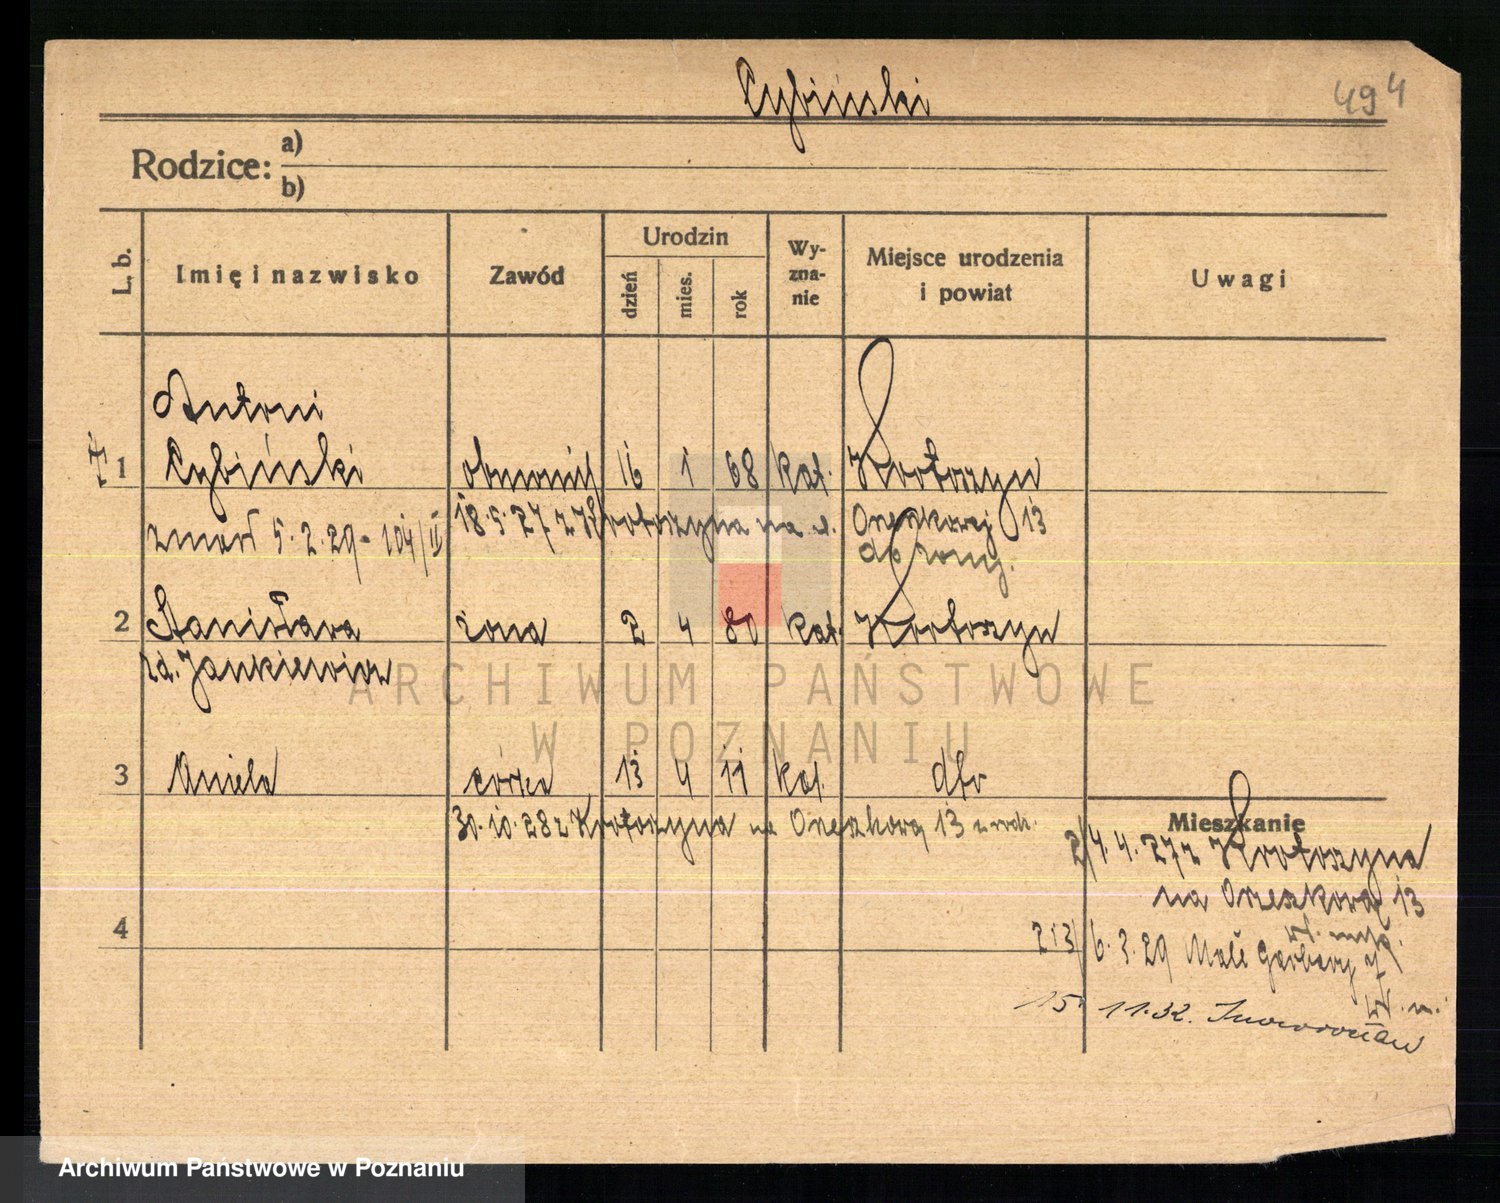 Cybiński
494
Rodzice: a)
b)
L. b.
Imię i nazwisko
Zawód
Urodzin
dzień
mies.
rok
Wy-
zna-
nie
Miejsce urodzenia
i powiat
Uwagi
Antoni
1 Cybiński 16 1 68 kat. Krotoszyn
zmarł 5.2.29 - 104/II
18.5.27 z Krotoszyna na Orzeszkowej 13
do żony.
2 Stanisława żona 2 4 80 kat. Krotoszyn
zd. Jankiewicz
ARCHIWUM PAŃSTWOWE
W POZNANIU
3 Aniela córka 13 4 11 kat. dto
30.10.28 z Krotoszyna na Orzeszkowej 13
Mieszkanie
4.4.27 z Krotoszyna
na Orzeszkowej 13
4
213/ 6.3.29 Małe Garbary
15. 11.32. Inowrocław
Archiwum Państwowe w Poznaniu